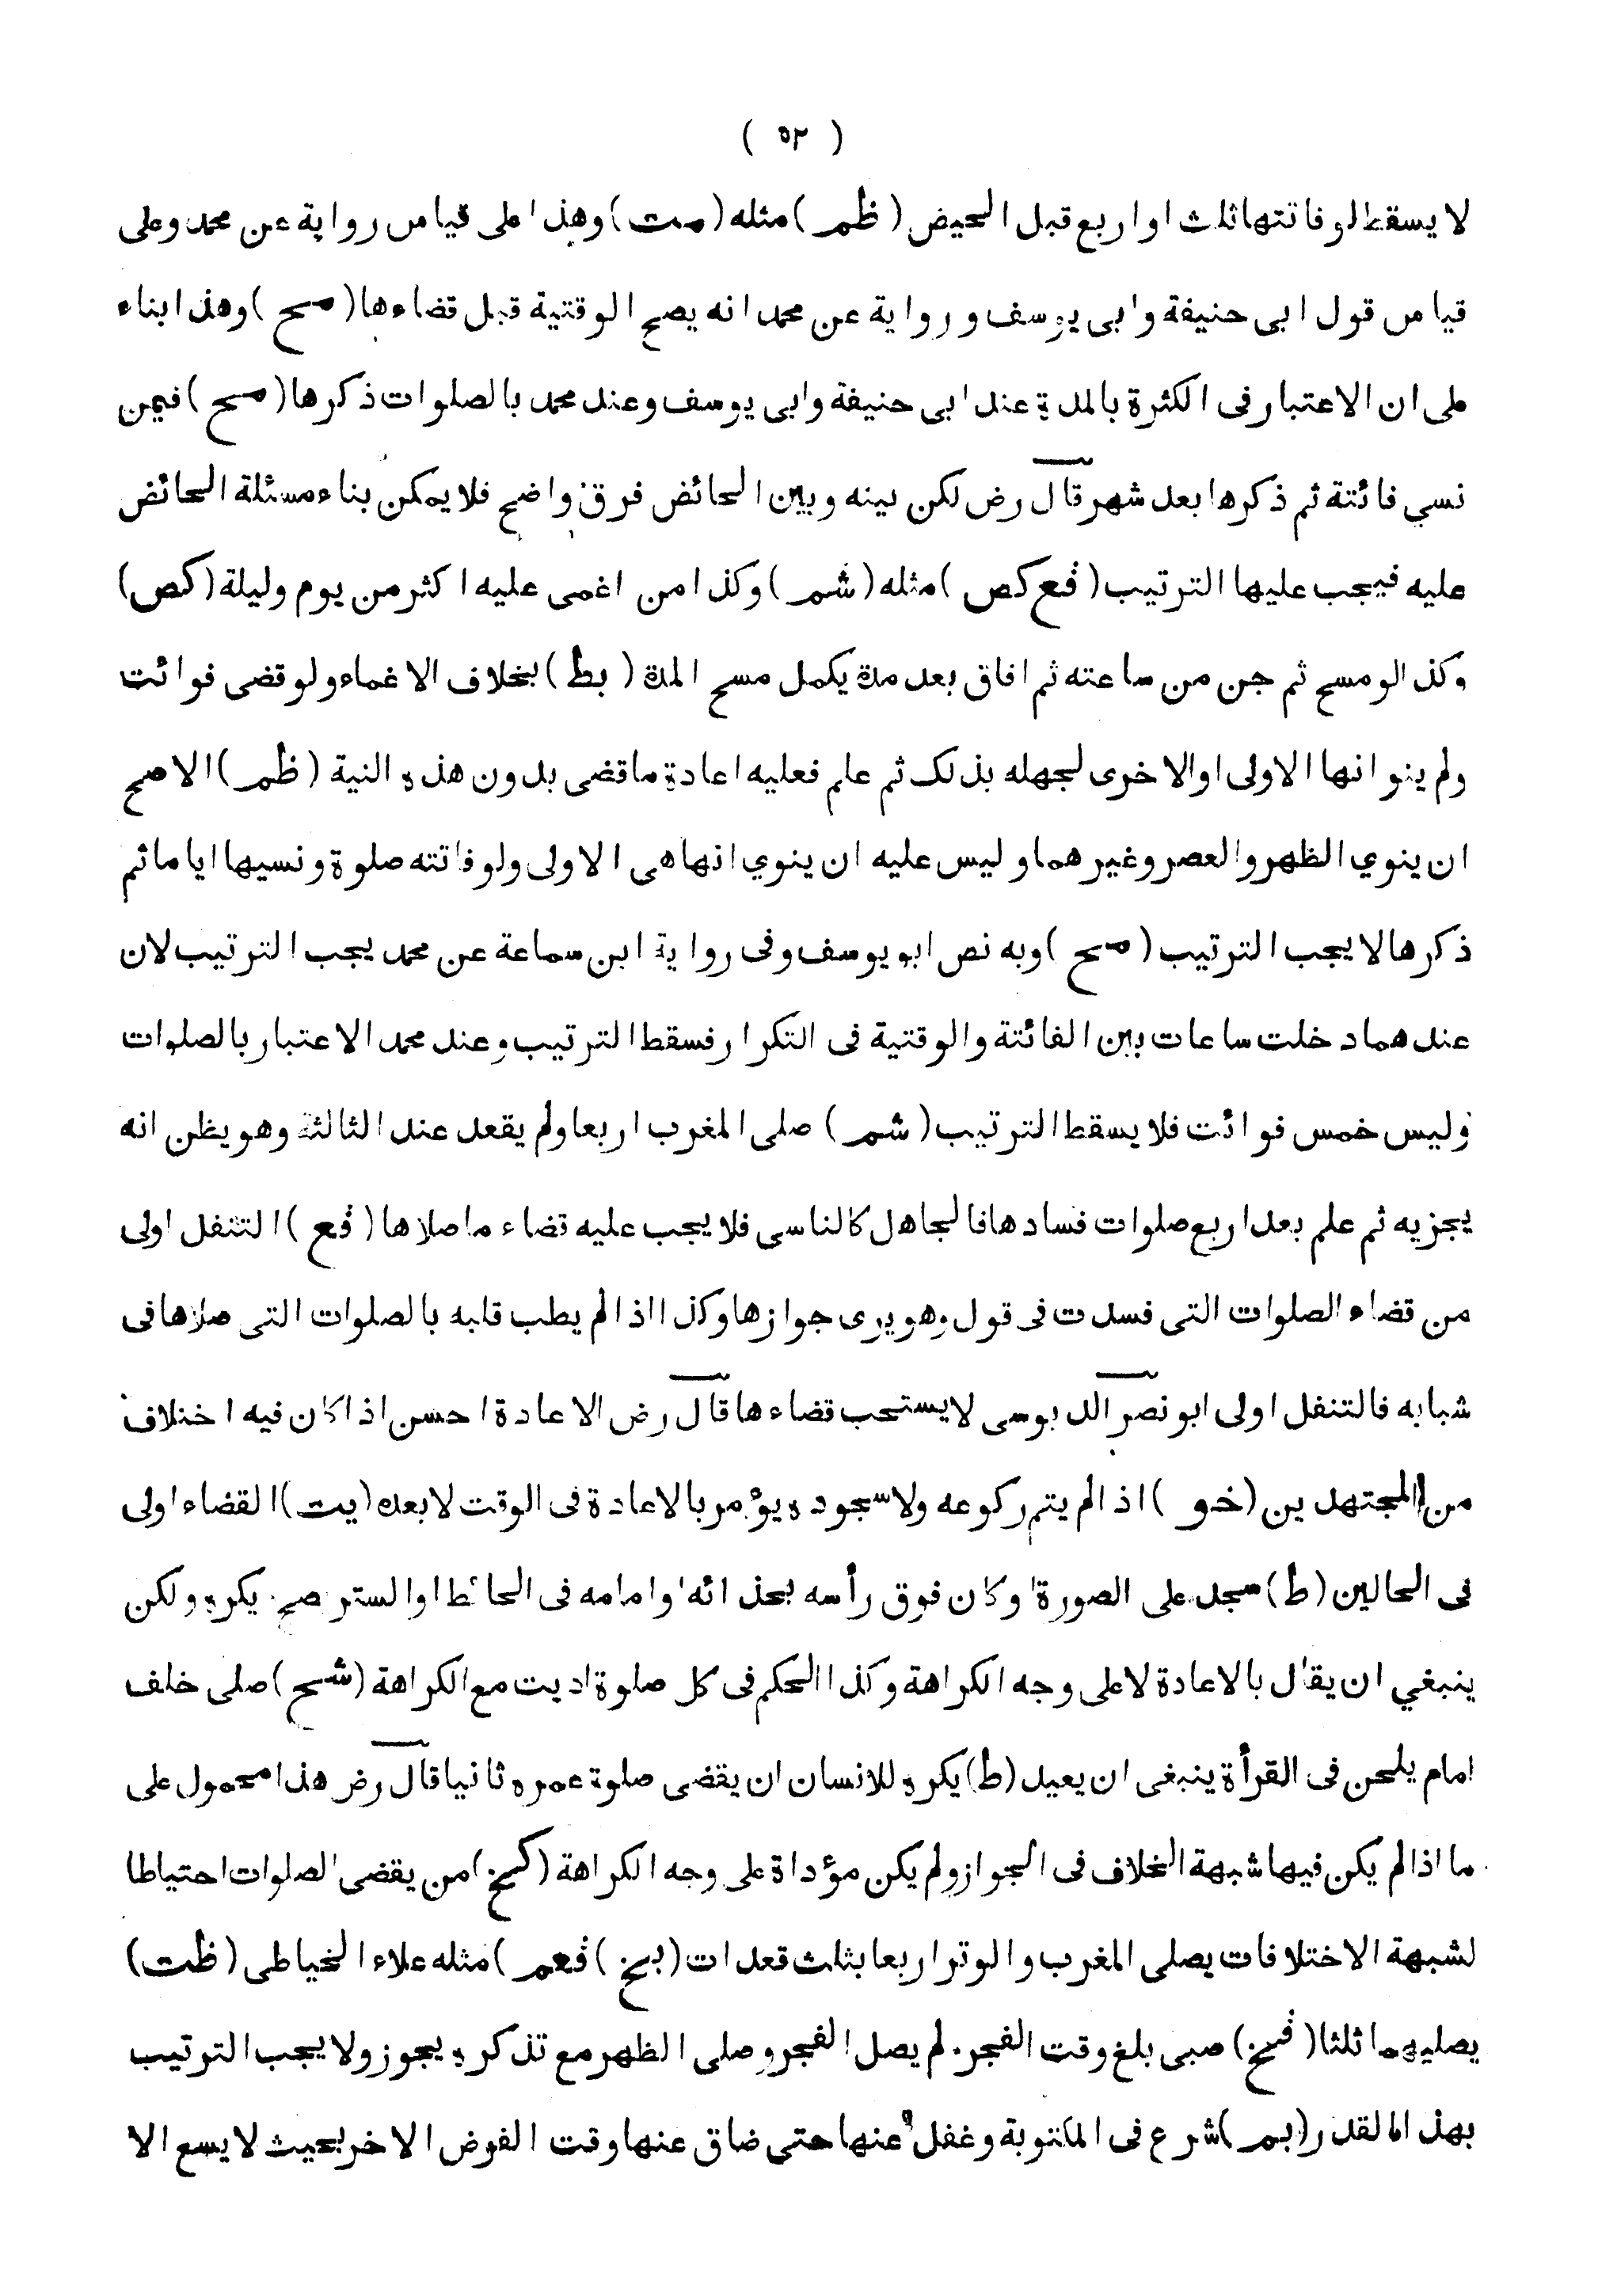 ( ٥٢ )
لا يسقط لو فاتتها ثلث او اربع قبل الحيض (ظم) مثله (مت) وهذا على قياس رواية عن محمد وعلى
قياس قول ابى حنيفة وابى يوسف ورواية عن محمد انه يصح الوقتية قبل قضاءها (صح) وهذا بناء
على ان الاعتبار فى الكثرة بالمدة عند ابى حنيفة وابى يوسف وعند محمد بالصلوات ذكرها (صح) فيمن
نسي فائتة ثم ذكرها بعد شهر قال رض لكن بينه وبين الحائض فرق واضح فلا يمكن بناء مسئلة الحائض
عليه فيجب عليها الترتيب (فع كص) مثله (شم) وكذا من اغمى عليه اكثر من يوم وليلة (كص)
وكذا لو مسح ثم جن من ساعته ثم افاق بعد مدة يكمل مسح المدة (بط) بخلاف الاغماء ولو قضى فوائت
ولم ينو انها الاولى او الاخرى لجهله بذلك ثم علم فعليه اعادة ما قضى بدون هذه النية (ظم) الاصح
ان ينوي الظهر والعصر وغيرهما وليس عليه ان ينوي انها هى الاولى ولو فاتته صلوة ونسيها اياما ثم
ذكرها لا يجب الترتيب (صح) وبه نص ابو يوسف وفى رواية ابن سماعة عن محمد يجب الترتيب لان
عندهما دخلت ساعات بين الفائتة والوقتية فى التكرار فسقط الترتيب وعند محمد الاعتبار بالصلوات
وليس خمس فوائت فلا يسقط الترتيب (شم) صلى المغرب اربعا ولم يقعد عند الثالثة وهو يظن انه
يجزيه ثم علم بعد اربع صلوات فسادها فالجاهل كالناسى فلا يجب عليه قضاء ما صلاها (فع) التنفل اولى
من قضاء الصلوات التى فسدت فى قول وهو يرى جوازها وكذا اذا لم يطب قلبه بالصلوات التى صلاها فى
شبابه فالتنفل اولى ابو نصر الدبوسى لا يستحب قضاءها قال رض الاعادة احسن اذا كان فيه اختلاف
من المجتهدين (خو) اذا لم يتم ركوعه ولا سجوده يؤمر بالاعادة فى الوقت لا بعده (يت) القضاء اولى
فى الحالين (ط) سجد على الصورة او كان فوق رأسه بحذائه او امامه فى الحائط او الستر صح يكره ولكن
ينبغي ان يقال بالاعادة لا على وجه الكراهة وكذا الحكم فى كل صلوة اديت مع الكراهة (شح) صلى خلف
امام يلحن فى القرأة ينبغى ان يعيد (ط) يكره للانسان ان يقضى صلوة عمره ثانيا قال رض هذا محمول على
ما اذا لم يكن فيها شبهة الخلاف فى الجواز ولم يكن مؤداة على وجه الكراهة (كخ) من يقضى الصلوات احتياطا
لشبهة الاختلافات يصلى المغرب والوتر اربعا بثلث قعدات (بخ) فعم) مثله علاء الخياطى (ظت)
يصليهما ثلثا (فخ) صبى بلغ وقت الفجر. لم يصل الفجر وصلى الظهر مع تذكره يجوز ولا يجب الترتيب
بهذا القدر (بم) شرع فى المكتوبة وغفل عنها حتى ضاق عنها وقت الفرض الاخر بحيث لا يسع الا